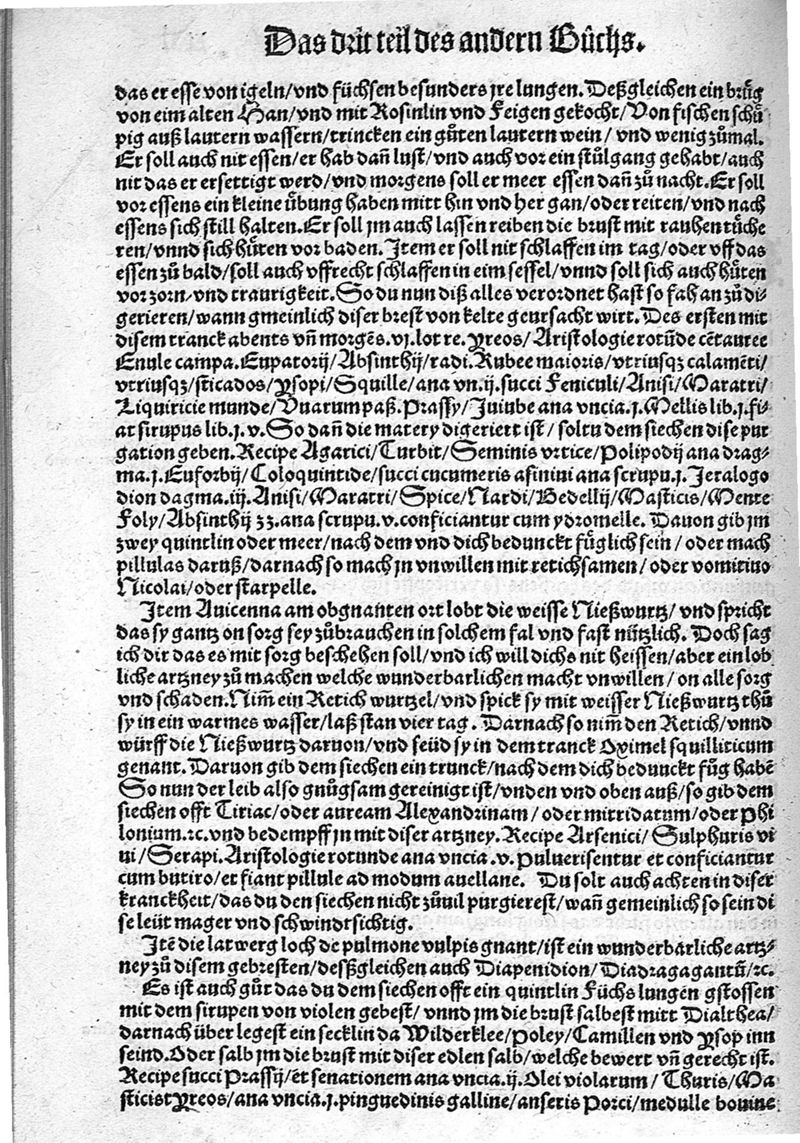 Das drit teil des andern Bůchs.
das er esse von igeln/vnd füchsen besunders jre lungen. Deßgleichen ein brůg
von eim alten Han/vnd mit Rosinlin vnd Feigen gekocht/Von fischen schů
pig auß lautern wassern/trincken ein gůten lautern wein/ vnd wenig zůmal.
Er soll auch nit essen/er hab dañ lust/vnd auch vor ein stůlgang gehabt/auch
nit das er ersettigt werd/vnd morgens soll er meer essen dañ zů nacht. Er soll
vor essens ein kleine übung haben mitt hin vnd her gan/oder reiten/vnd nach
essens sich still halten. Er soll jm auch lassen reiben die brust mit rauhen tůche
ren/vnnd sich hůten vor baden. Item er soll nit schlaffen im tag/oder vff das
essen zů bald/soll auch vffrecht schlaffen in eim sessel/vnnd soll sich auch hůten
vor zorn/vnd traurigkeit. So du nun diß alles verordnet hast so fah an zů di⸗
gerieren/wann gmeinlich diser brest von kelte geursacht wirt. Des ersten mit
disem tranck abents vñ morgēs.vj.lot re. Yreos/Aristologie rotūde cētauree
Enule campa. Eupatorij/Absinthij/radi. Rubee maioris/vtriusqʒ calamēti/
vtriusqʒ/sticados/Ysopi/Squille/ana vn.ij.succi Feniculi/Anisi/Maratri/
Liquiricie munde/Vuarum paß. Prassy/Juiube ana vncia.j.Mellis lib.j.fi⸗
at sirupus lib.j.v. So dañ die matery digeriert ist/ soltu dem siechen dise pur
gation geben. Recipe Agarici/Turbit/Seminis vrtice/Polipodij ana drag⸗
ma.j.Euforbij/Coloquintide/succi cucumeris asinini ana scrupu.j.Jeralogo
dion dagma.iij.Anisi/Maratri/Spice/Nardi/Bedellij/Masticis/Mente
Foly/Absinthij ʒʒ.ana scrupu.v.conficiantur cum ydromelle. Dauon gib jm
zwey quintlin oder meer/nach dem vnd dich bedunckt füglich sein/ oder mach
pillulas daruß/darnach so mach jn vnwillen mit retichsamen/ oder vomitiuo
Nicolai/oder starpelle.
Item Auicenna am obgnanten ort lobt die weisse Nießwurtz/ vnd spricht
das sy gantz on sorg sey zůbrauchen in solchem fal vnd fast nützlich. Doch sag
ich dir das es mit sorg beschehen soll/vnd ich will dichs nit heissen/aber ein lob
liche artzney zů machen welche wunderbarlichen macht vnwillen/ on alle sorg
vnd schaden. Nim̃ ein Retich wurtzel/vnd spick sy mit weisser Nießwurtz thů
sy in ein warmes wasser/laß stan vier tag. Darnach so nim̃ den Retich/vnnd
würff die Nießwurtz daruon/vnd seüd sy in dem tranck Oximel squilliticum
genant. Daruon gib dem siechen ein trunck/nach dem dich bedunckt fůg habē
So nun der leib also gnůgsam gereinigt ist/vnden vnd oben auß/so gib dem
siechen offt Tiriac/oder auream Alexandrinam/oder mitridatum/oder Phi
lonium.⁊c.vnd bedempff jn mit diser artzney. Recipe Arsenici/Sulphuris vi
ui/Serapi. Aristologie rotunde ana vncia.v. Puluerisentur et conficiantur
cum butiro/et fiant pillule ad modum auellane. Du solt auch achten in diser
kranckheit/das du den siechen nicht zůuil purgierest/wañ gemeinlich so sein di
se leüt mager vnd schwindtsichtig.
Itē die latwerg loch de pulmone vulpis gnant/ist ein wunderbarliche artz⸗
ney zů disem gebresten/desßgleichen auch Diapenidion/Diadragagantū/⁊c.
Es ist auch gůt das du dem siechen offt ein quintlin Füchs lungen gstossen
mit dem sirupen von violen gebest/ vnnd jm die brust salbest mitt Dialthea/
darnach über legest ein secklin da Wilderklee/Poley/Camillen vnd Ysop inn
seind. Oder salb jm die brust mit diser edlen salb/welche bewert vñ gerecht ist.
Recipe succi Prassij/et senationem ana vncia.ij. Olei violarum/Thuris/Ma
sticis Yreos/ana vncia.j.pinguedinis galline/anseris Porci/medulle bouine